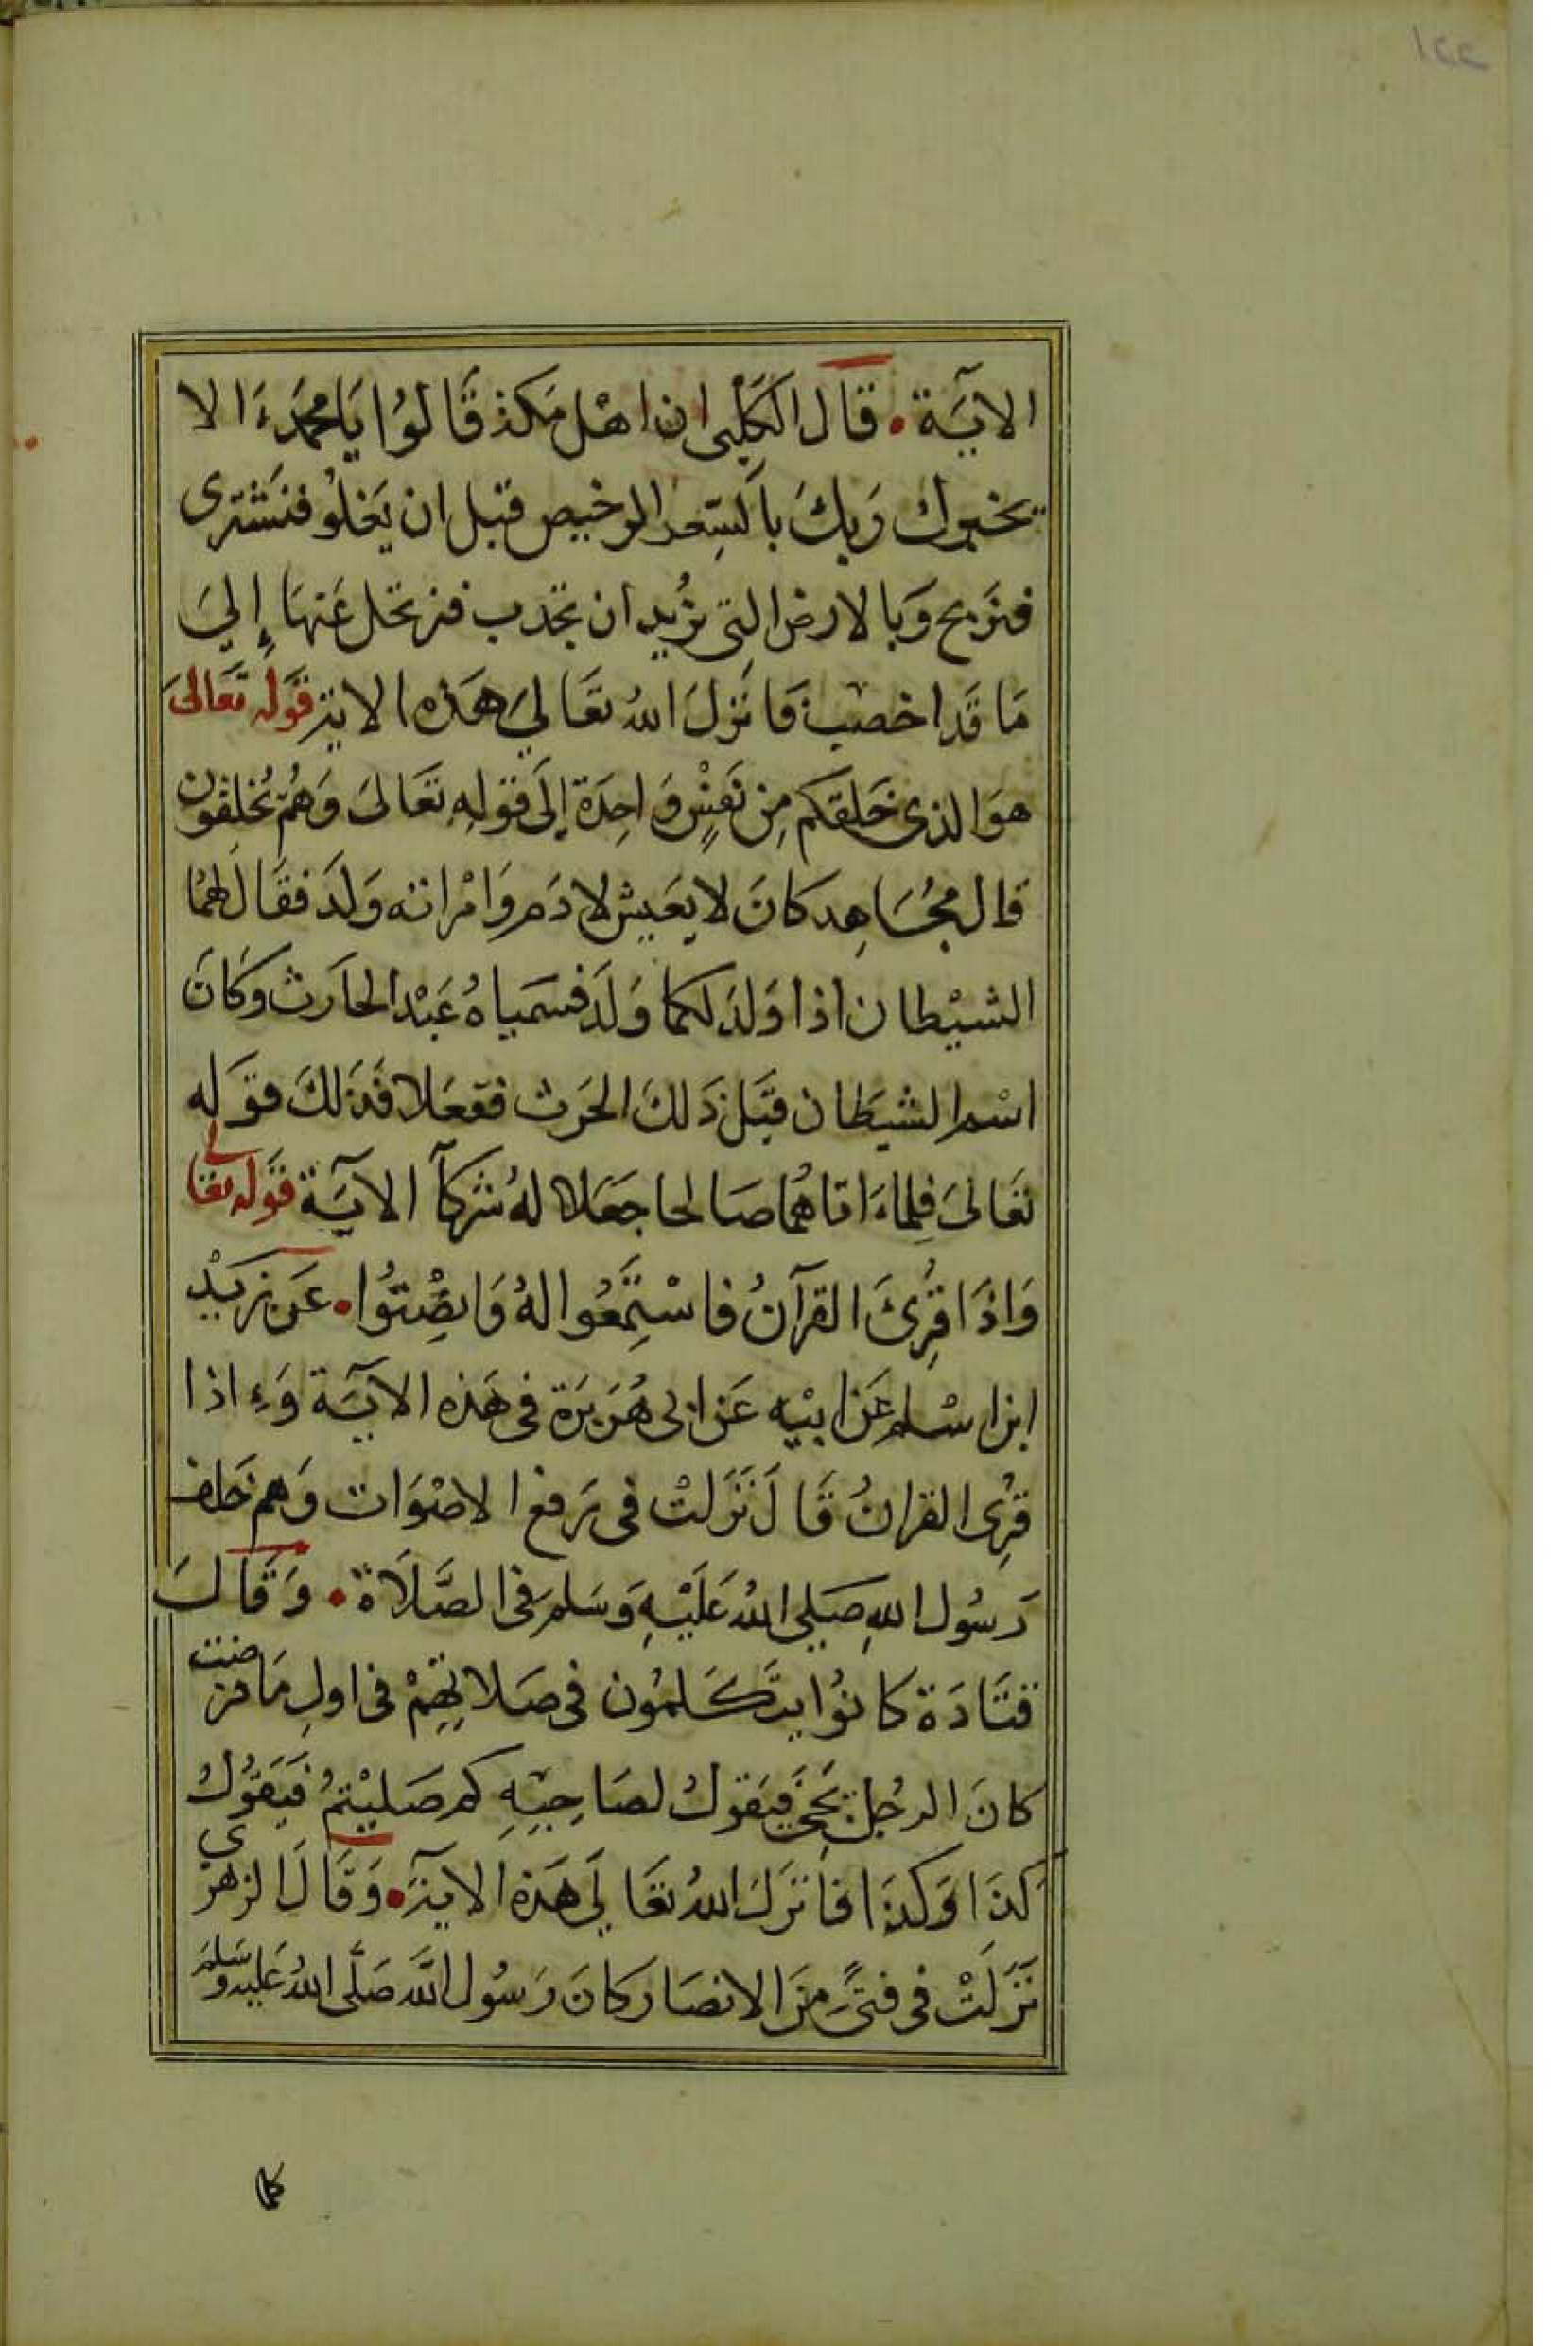 ١٢٢
الاٰيَة • قال الكَلْبى ان اهْل مَكة قَالوُا يَا محمَّد ءَ الا
يخبرك رَبك بالسِعر الرخيص قبل ان يَغلوُ فنَشترى
فنرَبح وَبا لارض التى نرُيد ان تجدب فنرتحل عَنهَا إِلىَ
مَا قَد اخصب فَانَزلَ اللهُ تعَالىَ هَذه الاية قَوله تعَالىَ
هوَ الذى خَلقكم مِن نَفسٍ وَاحِدَة إِلَى قَولهِ تعَالىَ وَهُمْ يُخلقون
قال مجُاهِد كانَ لا يعَيش لادَم وَامْراته وَلَد فقَالَ لهمُا
الشيْطان اذا وَلدَ لكما وَلَد فسَمياهُ عَبْد الحَارث وكَانَ
اسْم الشيطَان قبَل ذَلكَ الحَرث ففعَلا فَذلكَ قوَله
تعَالىَ فلماءَاتاهُما صَالحا جَعَلا لهُ شركاً الآيَة قوَله تعَالى
وَاذَا قرِىَٔ القرآنُ فاسْتمِعُوا لهُ وَانصِتوُا • عَن زيَدْ
ابن اسْلم عَن ابيْه عَن ابى هُرَيرَة فى هَذه الآيَة وَءِاذا
قرِى القرانُ قَالَ نَزَلتْ فى رَفع الاصْوَات وَهم خَلف
رَسُول اللهِ صَلى اللهُ عَليْهِ وَسَلم فى الصَّلَاة • وَقَالَ
قتَادَة كانوُا يتَكلمُون فى صَلاتِهِمْ فى اولِ مَا فرضت
كانَ الرجُل يجَئ فيَقولُ لصَاحِبهِ كم صَليْتمُ فيَقوُلُ
كذَا وَكذَا فاَنزَلَ اللهُ تعَالىَ هَذهِ الاية • وَقَالَ الزهرى
نَزَلَتْ فى فتىً منَ الانصَار كانَ رَسُول اللَّه صَلَّى اللهُ عَليه وسَلمَ
كلما